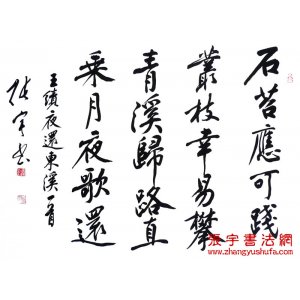 石苔應可踐
叢枝幸易攀
青溪歸路直
乘月夜歌還
王績夜還東溪一首
張宇書
張宇書法網
www.zhangyushufa.com